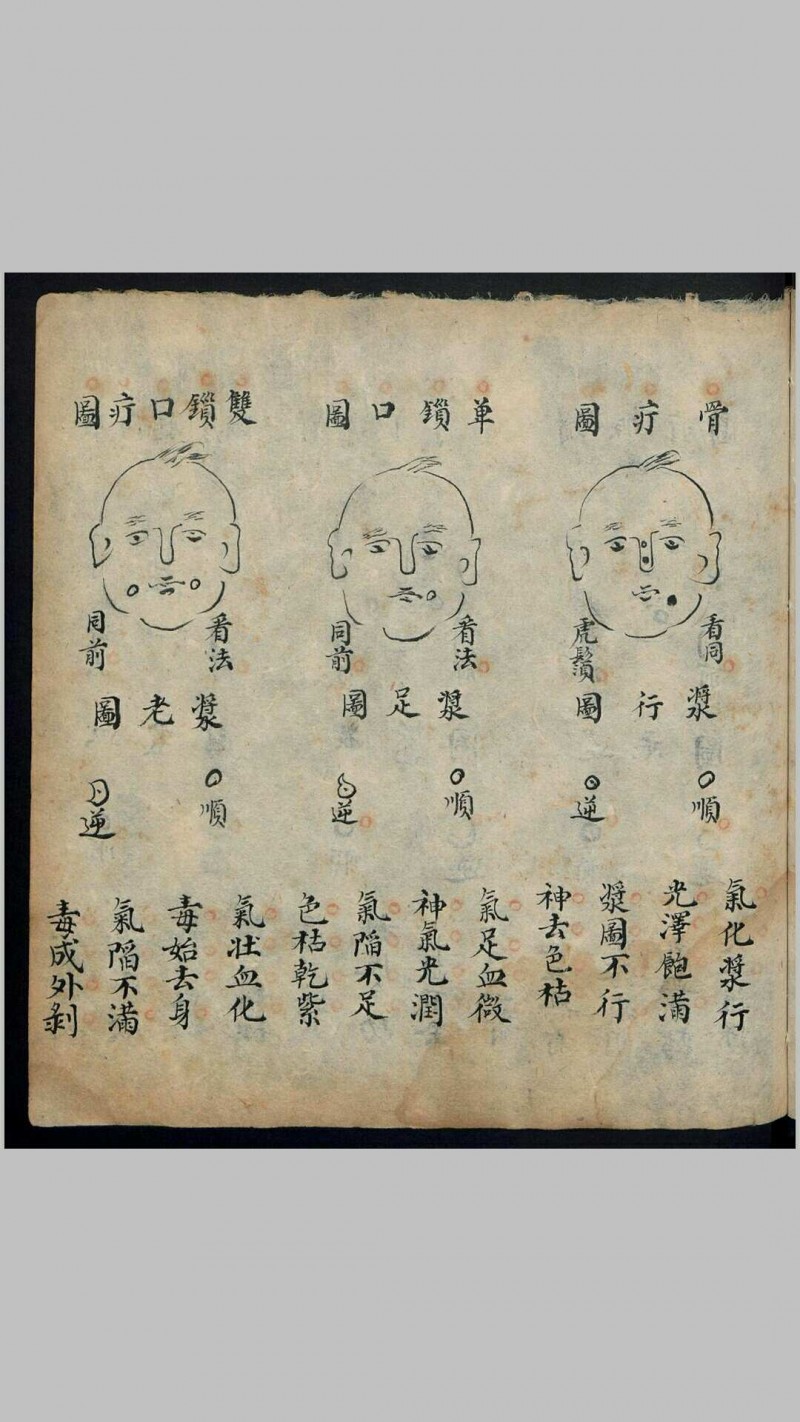 骨疔圖
看同
虎鬚
漿行圖
順
逆
氣化漿行
光澤飽滿
漿圖不行
神去色枯
单鎖口圖
看法
同前
漿足圖
順
逆
氣足血微
神氣光潤
氣陷不足
色枯乾紫
雙鎖口疔圖
看法
同前
漿老圖
順
逆
氣壮血化
毒始去身
氣陷不滿
毒成外剝